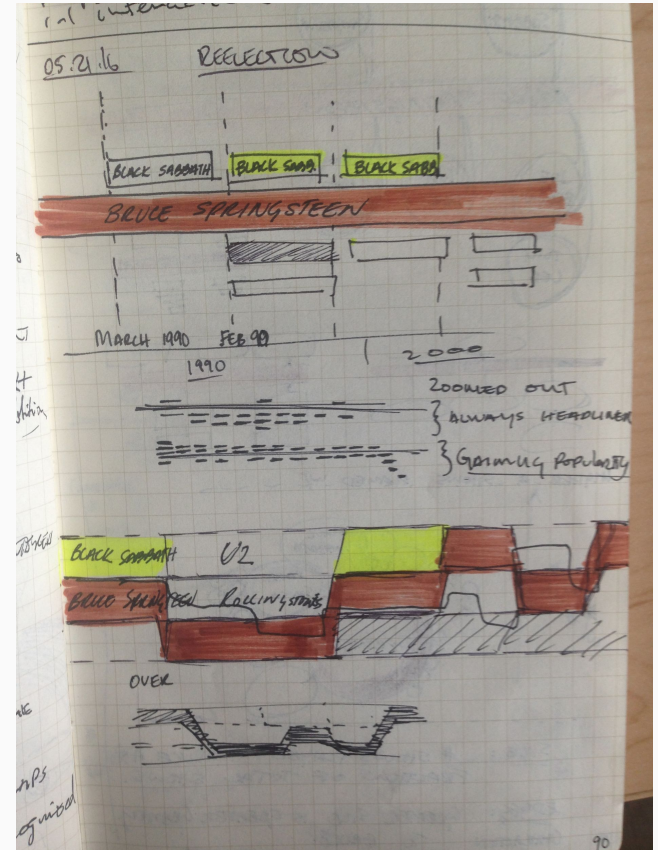 05.21.16 REELECTION
BLACK SABBATH BLACK SABB. BLACK SABB
BRUCE SPRINGSTEEN
MARCH 1990 FEB 90
1990 2000
ZOOMED OUT
ALWAYS HEADLINER
GAINING POPULARITY
BLACK SABBATH U2
BRUCE SPRINGSTEEN ROLLING STONES
OVER
90